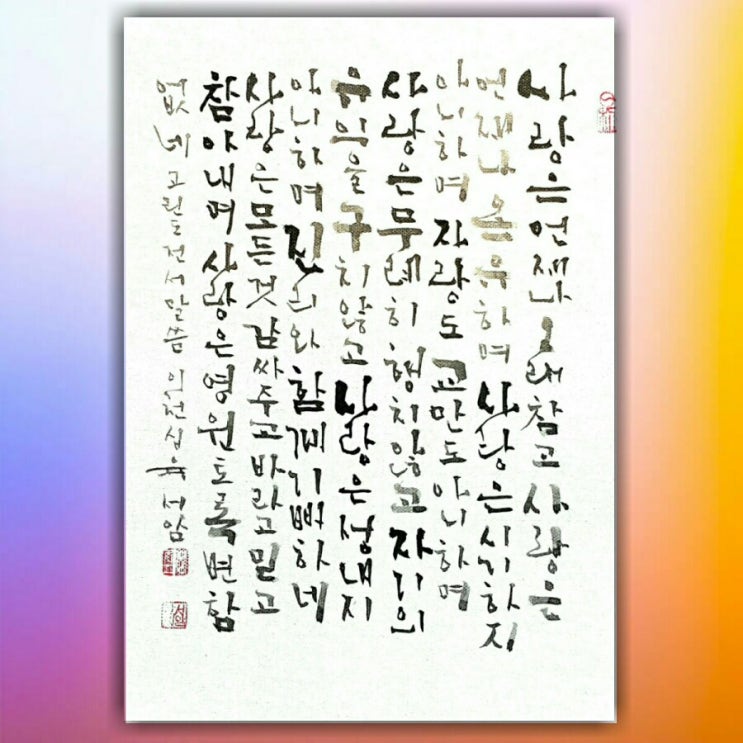 사랑은언제나오래참고사랑은
언제나온유하며사랑은시기하지
아니하며자랑도교만도아니하며
사랑은무례히행치않고자기의
유익을구치않고사랑은성내지
아니하며진리와함께기뻐하네
사랑은모든것감싸주고바라고믿고
참아내며사랑은영원토록변함
없네고린도전서말씀